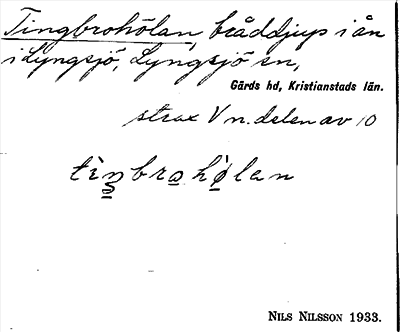 Tingbrohölan, bråddjup i ån
i Lyngsjö, Lyngsjö sn,
Gärds hd, Kristianstads län.
strax V n. delen av 10
tiŋbrahølan
NILS NILSSON 1933.